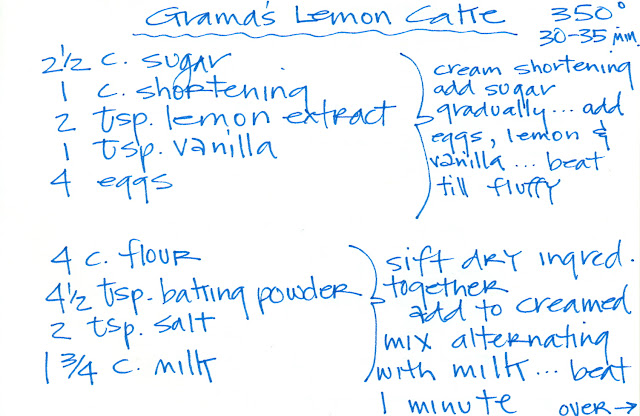 Grama's Lemon Cake
350°
30-35 min.
2½ c. sugar
1 c. shortening
2 tsp. lemon extract
1 tsp. vanilla
4 eggs
cream shortening
add sugar
gradually... add
eggs, lemon &
vanilla... beat
till fluffy
4 c. flour
4½ tsp. baking powder
2 tsp. salt
1 3/4 c. milk
sift dry ingred.
together
add to creamed
mix alternating
with milk... beat
1 minute
over→